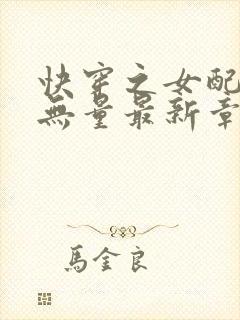 快穿之女配
無量最新章
馬金良